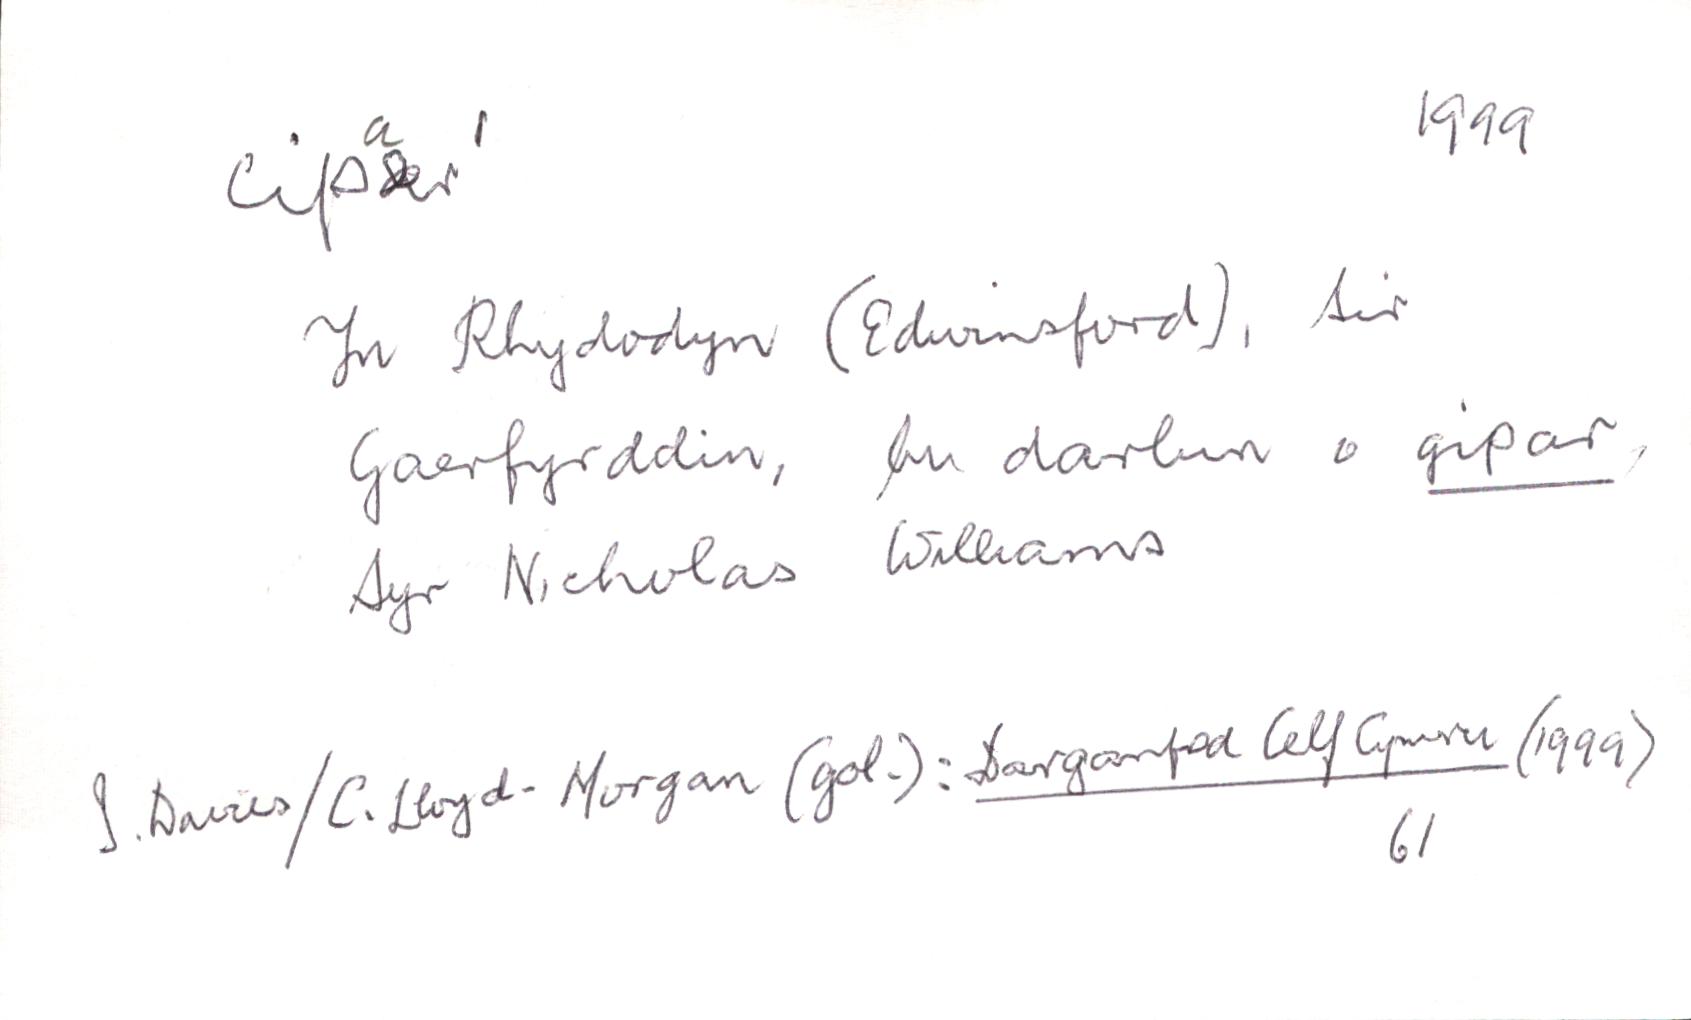 cipar¹ 1999
Yn Rhydodyn (Edwinsford), Sir
Gaerfyrddin, bu darlun o gipar,
Syr Nicholas Williams
I. Davies/C. Lloyd-Morgan (gol.): Darganfod Celf Cymru (1999)
61